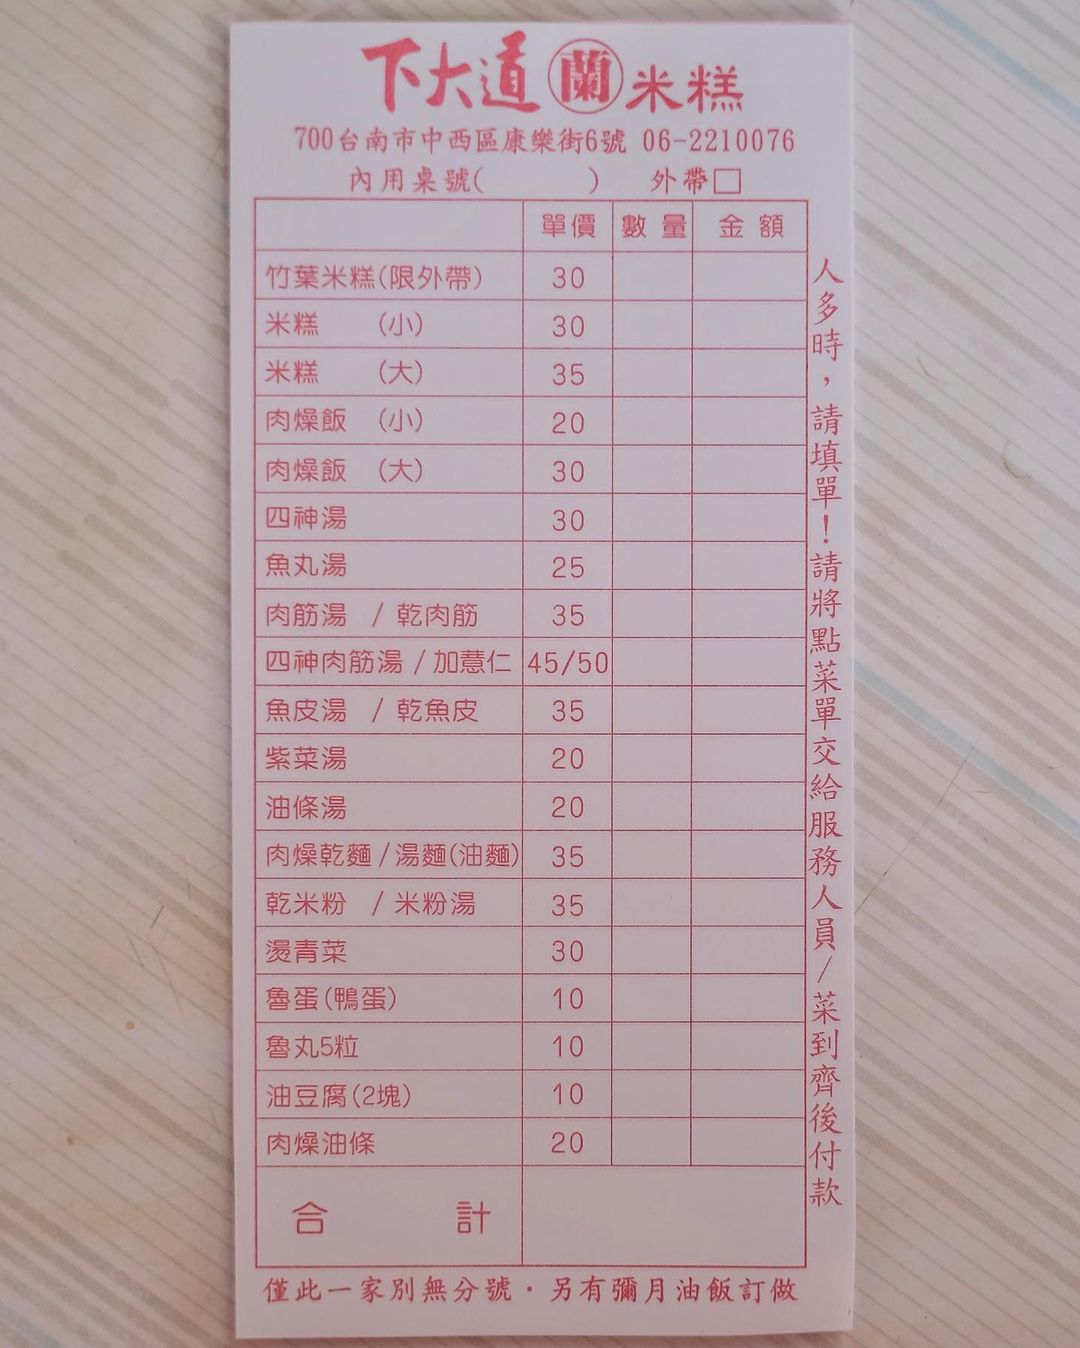 下大道 蘭 米糕
700台南市中西區康樂街6號 06-2210076
內用桌號(     ) 外帶□
單價 數量 金額
竹葉米糕(限外帶) 30
米糕 (小) 30
米糕 (大) 35
肉燥飯 (小) 20
肉燥飯 (大) 30
四神湯 30
魚丸湯 25
肉筋湯 / 乾肉筋 35
四神肉筋湯 / 加薏仁 45/50
魚皮湯 / 乾魚皮 35
紫菜湯 20
油條湯 20
肉燥乾麵 / 湯麵(油麵) 35
乾米粉 / 米粉湯 35
燙青菜 30
魯蛋(鴨蛋) 10
魯丸5粒 10
油豆腐(2塊) 10
肉燥油條 20
合計
人多時，請填單！請將點菜單交給服務人員/菜到齊後付款
僅此一家別無分號・另有彌月油飯訂做